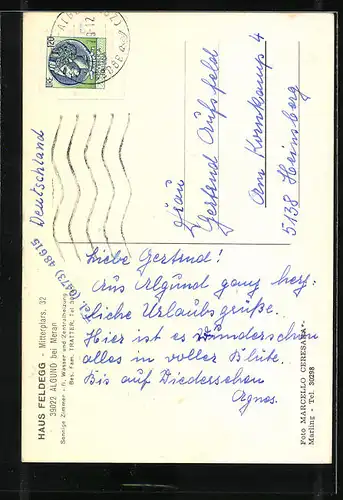 Liebe Gertrud!
Aus Algund ganz herz-
liche Urlaubsgrüße.
Hier ist es wunderschön
alles in voller Blüte.
Bis auf Wiedersehen
Agnes.
Frau
Gertrud Aufsfeld
Am Kornkamp 4
5138 Heinsberg
Deutschland
HAUS FELDEGG - Mitterplars, 32
39022 ALGUND bei Meran
Sonnige Zimmer - fl. Wasser und Zentralheizung
Bes. Fam. TRATTER, Tel.
Tel. (0473) 48615
Foto MARCELLO CERESARA
Marling - Tel. 30298